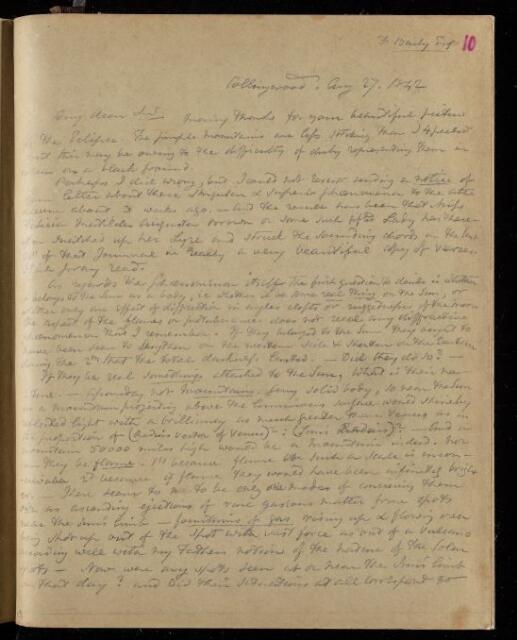 F. Baily Esqr 10
Collingwood. Aug 27. 1842
My dear Sir Many thanks for your beautiful picture
the Eclipse. The pimple mountains are less striking than I expected
but this may be owing to the difficulty of duly representing them in
on a black ground.
Perhaps I did wrong, but I could not resist sending a notice of
your letter about these singular & superb phænomena to the Athe
næum about 3 weeks ago. — and the result has been that Miss
or some such gifted Lady has there-
upon her Lyre and struck the sounding chords in the last
No of that Journal in really a very beautiful copy of verses
As regards the phænomenon itself the first question to decide is whether
it belongs to the Sun as a body, ie whether it is some real thing on the Sun, or
whether only an effect of diffraction in angular clefts or ruggednesses of the moon
The aspect of the flames or protuberances does not recal any diffractive
phænomenon that I remember. If they belonged to the Sun they ought to
have been seen to lengthen on the western side & shorten on the Eastern
during the 2m that the total darkness lasted. — Did they do so? —
If they be real somethings attached to the Sun, What is their na
ture. — Assuredly not mountains. Any solid body, so near the Sun
as a mountain projecting above the luminous surface would shine by
reflected light with a brilliancy as much greater than Venus as in
the proportion of (Radius vector of Venus)2 : (Sun's Radius)2 — and a
mountain 50000 miles high would be a mountain indeed. Nor
can they be flame. 1st because flame on such a scale is incon-
ceivable 2d because if flame they would have been infinitely bright
er. — There seems to me to be only one modes of conceiving them
viz as ascending ejections of rare gaseous matter from spots
near the Sun's limb — fountains of gas rising up & flowing over
shot up out of the spot with vast force as out of a volcano
according well with my Father's notion of the nature of the Solar
spots — Now were any spots seen at or near the Sun's limb
on that day? and did their situations at all correspond to